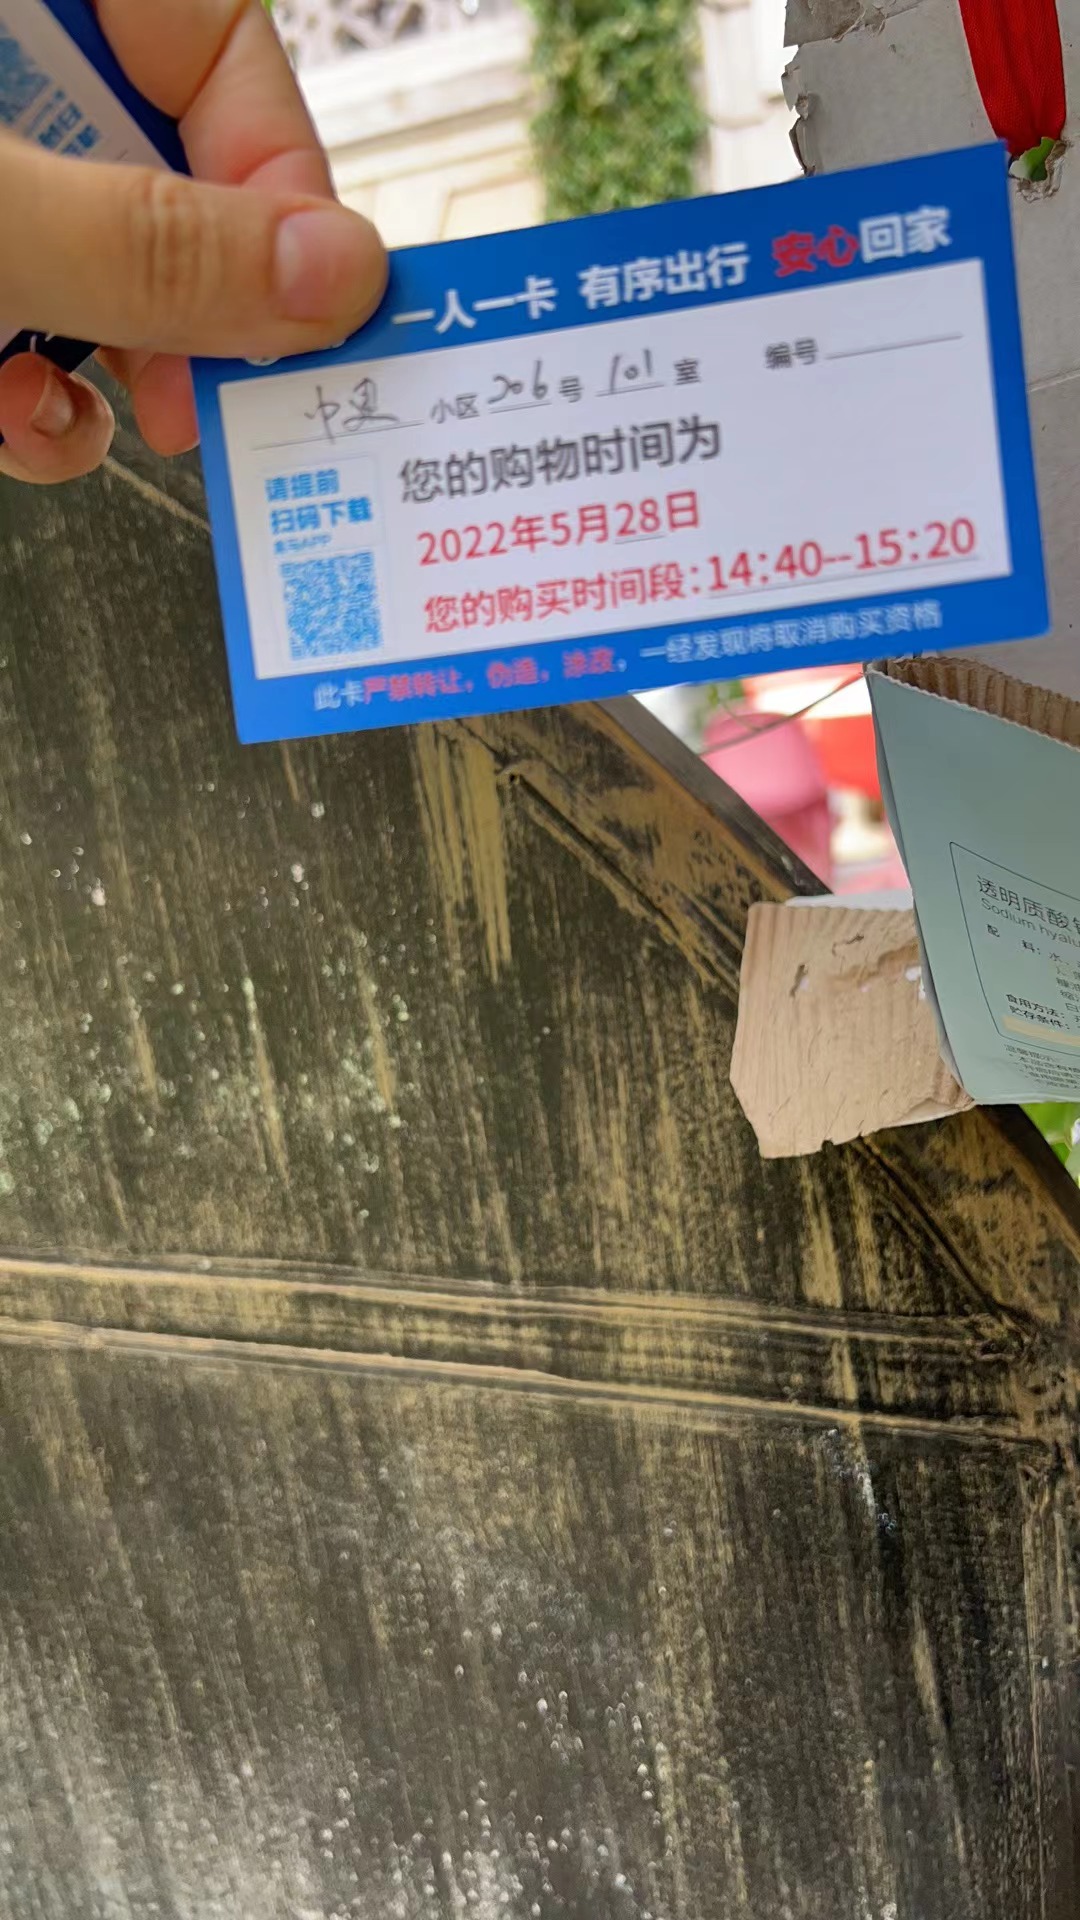 一人一卡 有序出行 安心回家
小区 206 号 101 室 编号
您的购物时间为
请提前
扫码下载
2022年5月28日
您的购买时间段：14：40--15：20
此卡严禁转让，伪造，涂改，一经发现将取消购买资格
透明质酸
Sodium hyalu
配 料：水、
食用方法：
贮存条件：